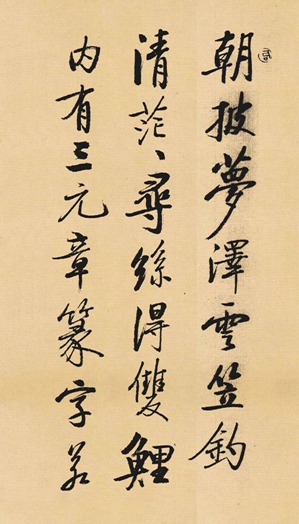 朝披夢澤雲笠釣
清茫茫尋絲得雙鯉
内有三元章篆字若